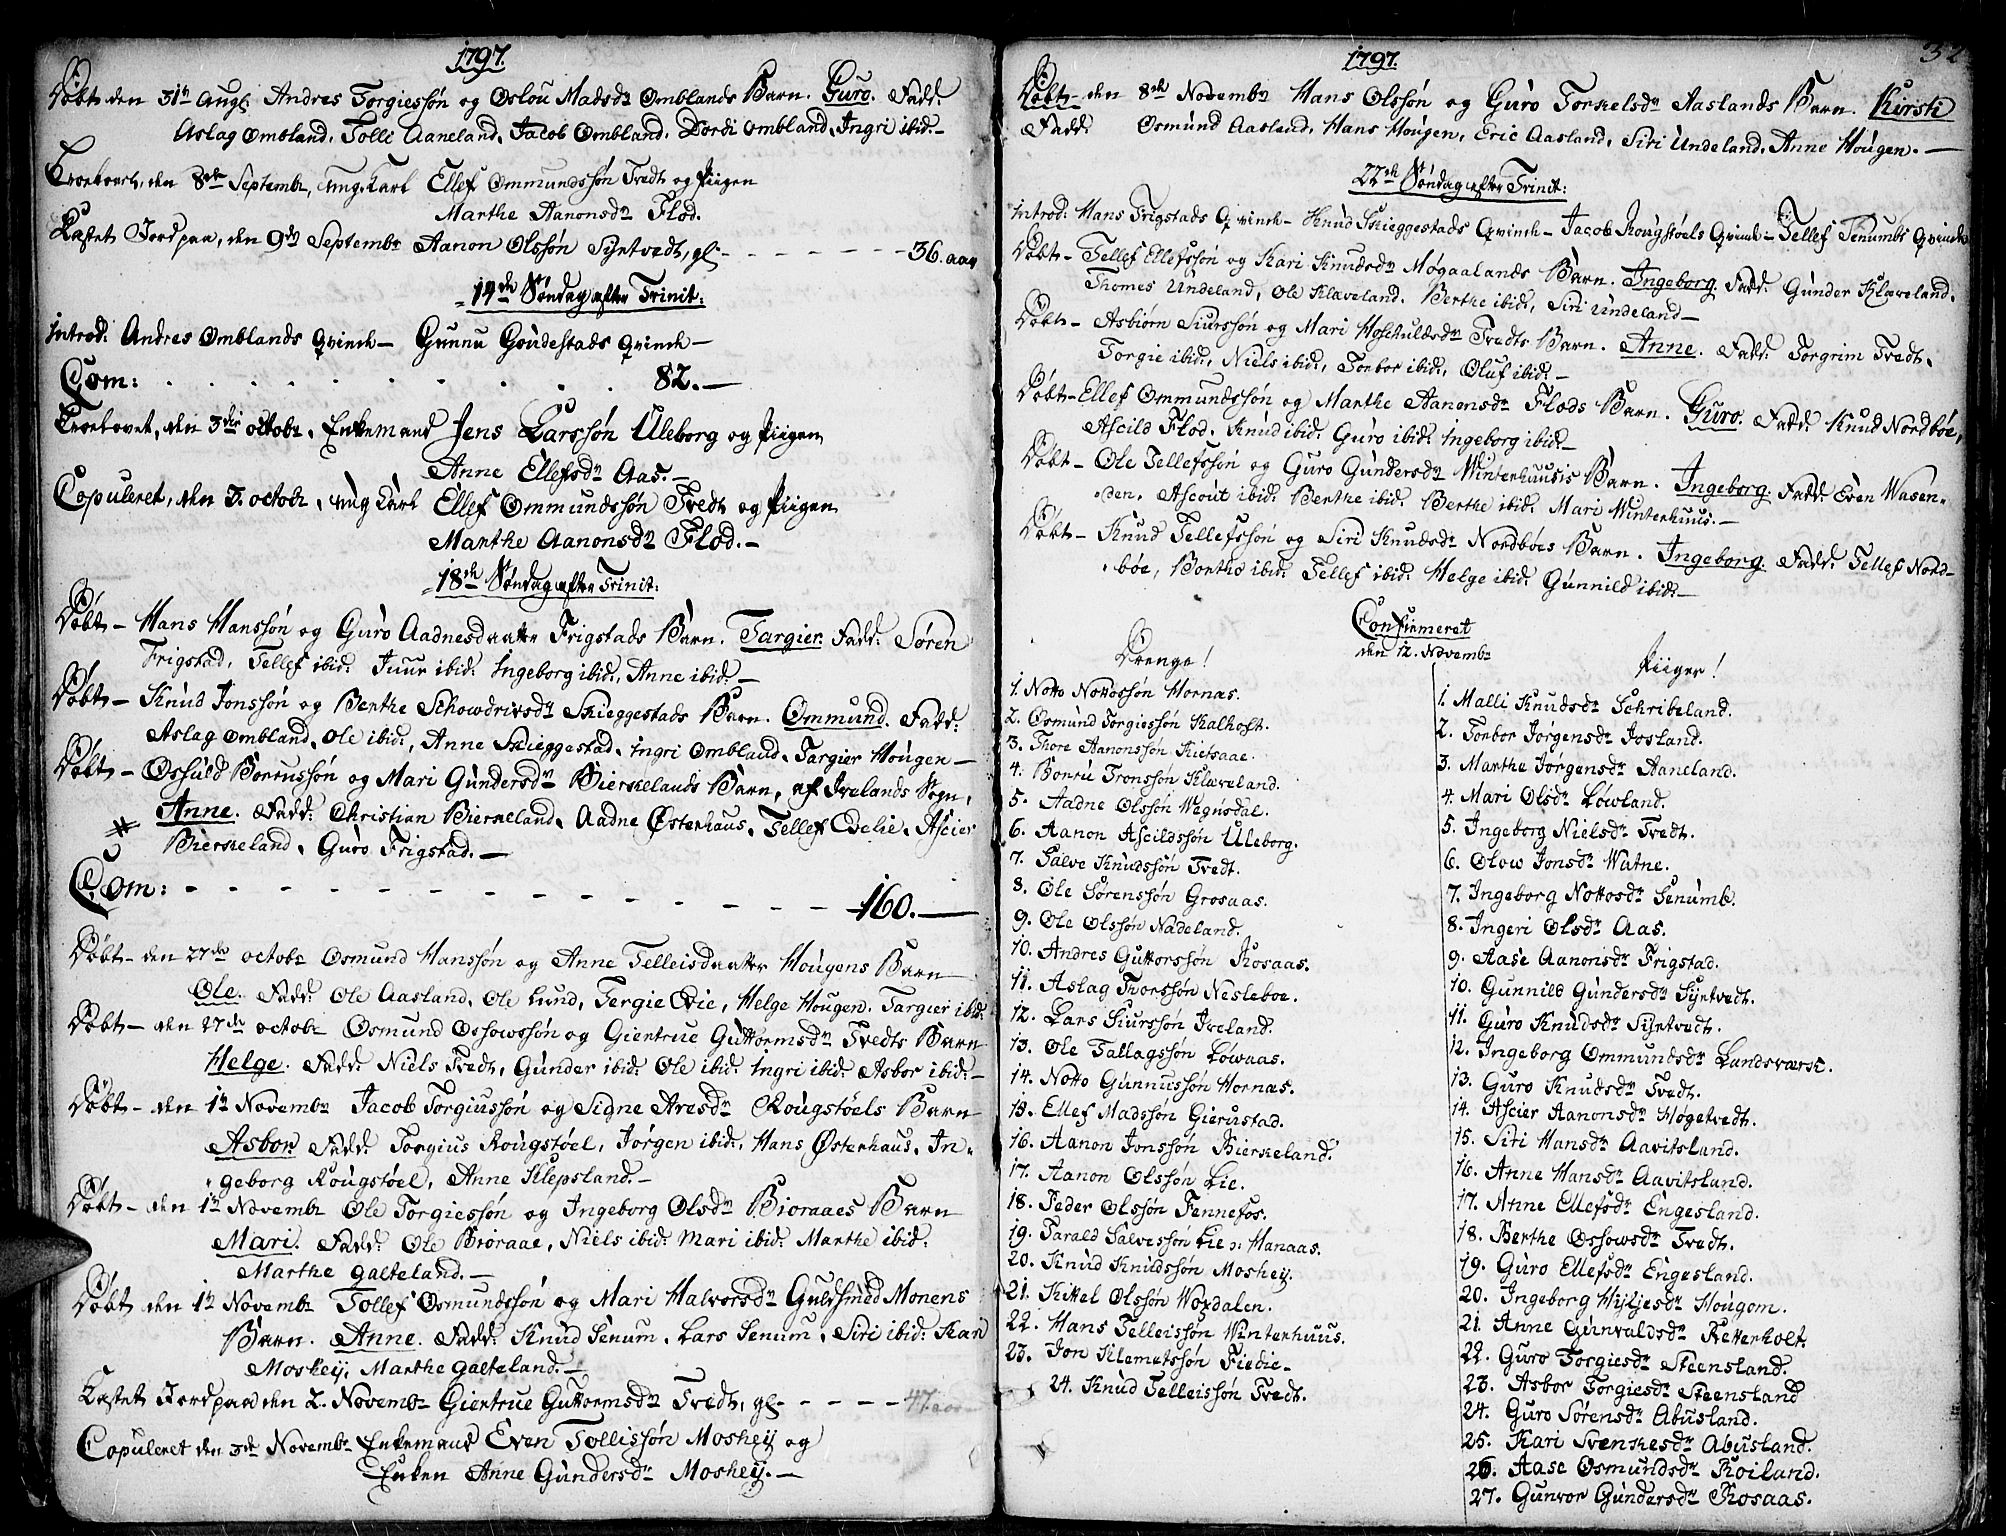 1797.
Døbt den 31te Augs. Andres Torgiessøn og Oslou Madsdr Omblands Barn. Guro. Fadd:
Aslag Ombland, Tolli Aaneland, Jacob Ombland, Dordi Ombland, Ingri ibid. —
Troelovet, den 8de Septembr, ung Karl Ellef Ommundssøn Tvedt og Piigen
Marthe Aanonsdr Flod.
Kastet Jord paa, den 9de Septembr Aanon Olssøn Syrtvedt, gl. - - - - - 36. aar
14de Søndag efter Trinit:
Introd: Andres Omblands Qvinde — Gunnu Goudestads Qvinde —
Com: . . . . . . . . . . 82. —
Troelovet, den 3die Octobr, Enkemand Jens Larssøn Uleborg og Piigen
Anne Ellefsdr Aas. —
Copuleret, den 5. Octobr, ung Karl Ellef Ommundssøn Tvedt og Piigen
Marthe Aanonsdr Flod. —
18de Søndag efter Trinit:
Døbt — Hans Hanssøn og Guro Aadnesdaatter Frigstads Barn. Targier. Fadd: Søren
Frigstad, Tellef ibid: Juur ibid: Ingeborg ibid:, Anne ibid: —
Døbt — Knud Jonssøn og Berthe Schowdrivsdr Skieggestads Barn. Ommund. Fadd:
Aslag Ombland, Ole ibid:, Anne Skieggestad, Ingri Ombland, Targier Hougen —
Døbt — Osfuld Borrussøn og Mari Gundersdr Bierkelands Barn, af Ivelands Sogn,
Anne. Fadd: Christian Bierkeland, Aadne Østerhaus, Tellef Odelie, Ascier
Bierkeland, Guro Frigstad. —
Com: - - - - - - - - - - - - 160. —
Døbt — den 27de Octobr Osmund Hanssøn og Anne Telleisdaatter Hougens Barn
Ole. Fadd: Ole Aasland, Ole Lund, Tergie Evie, Helge Hougen, Targier ibid:
Døbt — den 27de Octobr Osmund Ossowssøn og Giertrue Guttormsdr Tvedts Barn
Helge. Fadd: Niels Tvedt, Gunder ibid: Ole ibid: Ingri ibid: Asbor ibid: —
Døbt — den 1te Novembr Jacob Torgiussøn og Signe Aresdr Rougstøels Barn
Asbor. Fadd: Torgius Rougstøel, Jørgen ibid:, Hans Østerhaus, In-
geborg Rougstøel, Anne Klepsland. —
Døbt — den 1te Novembr Ole Torgiessøn og Ingeborg Olsdr Bioraaes Barn
Mari. Fadd: Ole Bioraae, Niels ibid: Mari ibid: Marthe ibid:
Marthe Galteland. —
Døbt den 1te Novembr Tollef Osmundssøn og Mari Halvorsdr Guldsmed Monens
Barn. Anne. Fadd: Knud Senum, Lars Senum, Siri ibid: Kari
Moskeij, Marthe Galteland. —
Kastet Jord paa den 2. Novembr Giertrue Guttormsdr Tvedt, gl. - - - - 47. aar
Copuleret den 3de Novembr Enkemand Even Tollissøn Moskeij og
Enken Anne Gundersdr Moskeij. —
1797.
32
Døbt — den 8de Novembr Hans Olssøn og Guro Torkelsdr Aaslands Barn. Kirsti
Fadd: Osmund Aasland, Hans Hougen, Eric Aasland, Siri Undeland, Anne Hougen. —
22de Søndag efter Trinit:
Introd: Hans Frigstads Qvinde — Knud Skieggestads Qvinde — Jacob Rougstøels Qvinde — Tellef Senumbs Qvinde
Døbt — Tellef Ellefssøn og Kari Knudsdr Møgaalands Barn. Ingeborg. Fadd: Gunder Klæveland,
Thomes Undeland, Ole Klæveland. Berthe ibid:, Siri Undeland —
Døbt — Asbiørn Siurssøn og Mari Hoskuldsdr Tvedts Barn. Anne. Fadd: Torgrim Tvedt,
Torgie ibid:, Niels ibid:, Torbor ibid:, Oluf ibid: —
Døbt — Ellef Ommundssøn og Marthe Aanonsdr Flods Barn. Guro. Fadd: Knud Nordbøe,
Ascild Flod. Knud ibid: Guro ibid: Ingeborg ibid: —
Døbt — Ole Tellefssøn og Guro Gundersdr Winterhuusis Barn. Ingeborg. Fadd: Even Wasen-
den. Ascout ibid: Berthe ibid: Berthe ibid: Mari Winterhuus. —
Døbt — Knud Tellefssøn og Siri Knudsdr Nordbøes Barn. Ingeborg. Fadd: Tellef Nord-
bøe, Berthe ibid: Tellef ibid: Helge ibid: Gunnild ibid: —
Confirmeret
den 12. Novembr
Drenge!
1. Notto Nottossøn Hornas.
2. Osmund Torgiessøn Kalhoft.
3. Thore Aanonssøn Kietsaae.
4. Borru Tronssøn Klæveland.
5. Aadne Olssøn Wegusdal.
6. Aanon Ascildssøn Uleborg.
7. Salve Knudssøn Tvedt.
8. Ole Sørenssøn Grosaas.
9. Ole Olssøn Nadeland.
10. Andres Guttorssøn Rosaas.
11. Aslag Torssøn Nesleboe.
12. Lars Siurssøn Iveland.
13. Ole Tallagssøn Løwaas.
14. Notto Gunnussøn Hornas.
15. Ellef Madssøn Gierustad.
16. Aanon Jonssøn Bierkeland.
17. Aanon Olssøn Lie.
18. Peder Olssøn Fennefos.
19. Tarald Salvessøn Lie: Hanaas.
20. Knud Knudssøn Moskeij.
21. Kittel Olssøn Woxdalen.
22. Hans Telleissøn Winterhuus.
23. Jon Klemetssøn Fiedie —
24. Knud Telleissøn Tvedt.
Piiger!
1. Malli Knudsdr Schribeland.
2. Torbor Jørgensdr Josland.
3. Marthe Jørgensdr Aaneland.
4. Mari Olsdr Løwland.
5. Ingeborg Nielsdr Tvedt.
6. Olow Jonsdr Watne.
7. Ingeborg Nottosdr Senumb.
8. Ingeri Olsdr Aas.
9. Aase Aanonsdr Frigstad.
10. Gunnild Gundersdr Syrtvedt.
11. Guro Knudsdr Syrtvedt.
12. Ingeborg Ommundsdr Landsværk.
13. Guro Knudsdr Tvedt.
14. Ascier Aanonsdr Høgetvedt.
15. Siri Hansdr Aavitsland.
16. Anne Hansdr Aavitsland.
17. Anne Ellefsdr Engesland.
18. Berthe Ossowsdr Tvedt.
19. Guro Ellefsdr Engesland.
20. Ingeborg Hiljesdr Hougom.
21. Anne Gunvaldsdr Retterholt.
22. Guro Torgiesdr Steensland.
23. Asbor Torgiesdr Steensland
24. Guro Sørensdr Abusland.
25. Kari Svenkesdr Abusland.
26. Aase Osmundsdr Roiland.
27. Gunvor Gundersdr Rosaas.